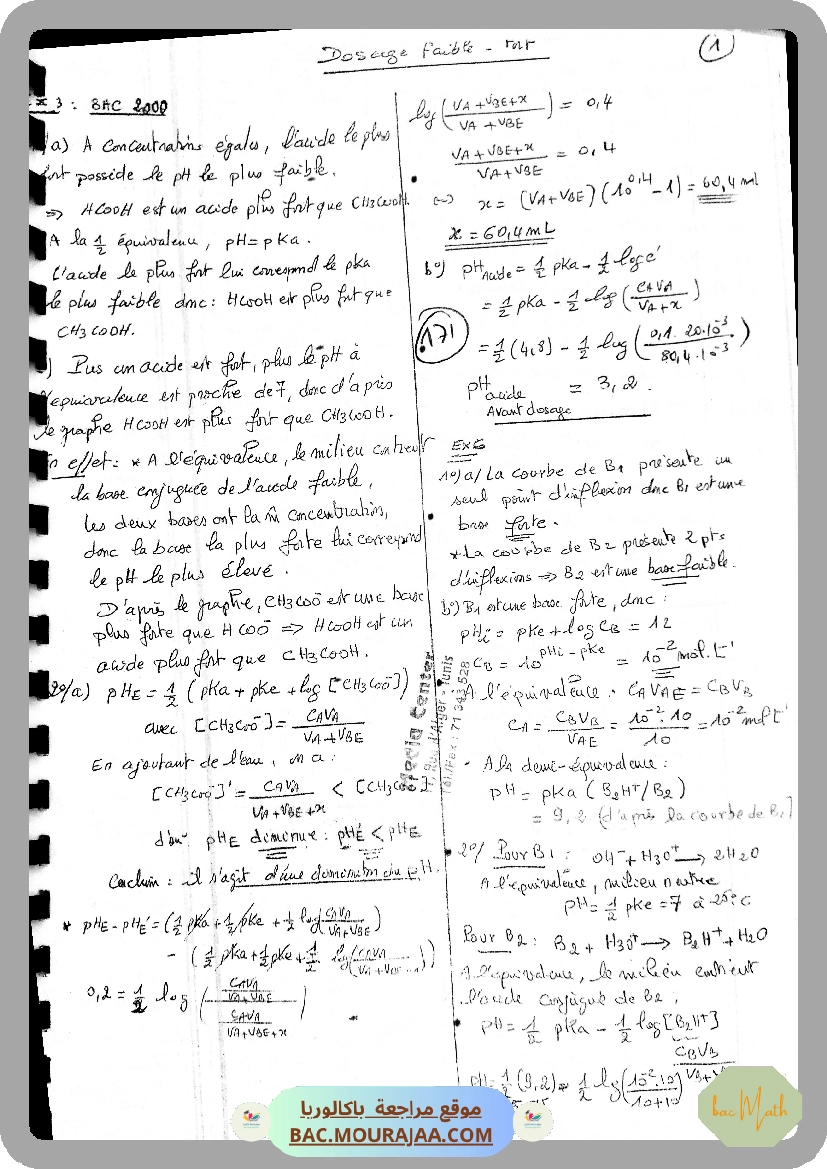 Dosage faible - fort
1
Ex 3 : BAC 2000
a) A concentrations égales, l'acide le plus
fort possède le pH le plus faible.
=> HCOOH est un acide plus fort que CH3COOH.
A la 1/2 équivalence, pH = pKa.
L'acide le plus fort lui correspond le pka
le plus faible donc : HCOOH est plus fort que
CH3COOH.
) Pus un acide est fort, plus le pH à
l'équivalence est proche de 7, donc d'après
le graphe HCOOH est plus fort que CH3COOH.
En effet : * A l'équivalence, le milieu contient
la base conjuguée de l'acide faible,
les deux bases ont la m̂ concentration,
donc la base la plus forte lui correspond
le pH le plus élevé.
D'après le graphe, CH3COO⁻ est une base
plus forte que HCOO⁻ => HCOOH est un
acide plus fort que CH3COOH.
2°/a) pHE = 1/2 (pKa + pKe + log [CH3COO⁻])
avec [CH3COO⁻] = CAVA / (VA + VBE)
En ajoutant de l'eau, on a :
[CH3COO⁻]' = CAVA / (VA + VBE + x) < [CH3COO⁻]
d'où pHE diminue : pH'E < pHE
Conclusion : il s'agit d'une diminution du pH.
* pHE - pHE' = (1/2 pKa + 1/2 pKe + 1/2 log (CAVA / (VA + VBE))
- (1/2 pKa + 1/2 pKe + 1/2 log (CAVA / (VA + VBE
0,2 = 1/2 log ((CAVA / (VA + VBE)) / (CAVA / (VA + VBE + x)))
log ((VA + VBE + x) / (VA + VBE)) = 0,4
(VA + VBE + x) / (VA + VBE) = 0,4
<=> x = (VA + VBE) (10^0,4 - 1) = 60,4 ml
x = 60,4 mL
b°) pH acide = 1/2 pKa - 1/2 log c'
= 1/2 pKa - 1/2 log (CAVA / (VA + x))
171
= 1/2 (4,8) - 1/2 log (0,1 . 20.10⁻³ / 80,4.10⁻³)
pH acide = 3,2.
Avant dosage
EX6
1°) a/ La courbe de B1 présente un
seul point d'inflexion donc B1 est une
base forte.
* La courbe de B2 présente 2 pts
d'inflexions => B2 est une base faible.
b°) B1 est une base forte, donc :
pHi = pKe + log CB = 12
CB = 10^(pHi - pKe) = 10⁻² mol.L⁻¹
A l'équivalence : CAVAE = CBVB
CA = CBVB / VAE = 10⁻². 10 / 10 = 10⁻² mol L⁻¹
- A la demi-équivalence :
pH = pKa (B2H⁺/B2)
= 9,2 (d'après la courbe de B
2°/ Pour B1 : OH⁻ + H3O⁺ → 2H2O
A l'équivalence, milieu neutre
pH = 1/2 pKe = 7 à 25°C
Pour B2 : B2 + H3O⁺ → B2H⁺ + H2O
A l'équivalence, le milieu contient
l'acide conjugué de B2,
pH = 1/2 pKa - 1/2 log [B2H⁺]
CBVB
pH = 1/2 (9,2) - 1/2 log (10⁻². 10 / 10 + 10)
Media Center
Tél./Fax : 71 343 528
موقع مراجعة باكالوريا
BAC.MOURAJAA.COM
bac Math